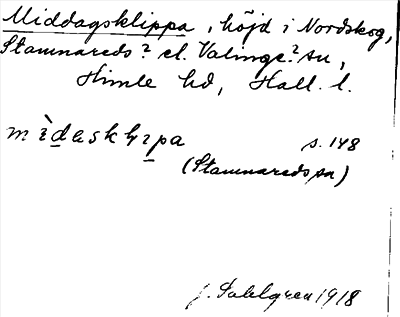 Middagsklippa, höjd i Nordskog,
Stamnareds? el. Valinge? sn,
Himle hd, Hall. l.
mìdasklıpa s. 148
(Stamnareds sn)
J. Sahlgren 1918